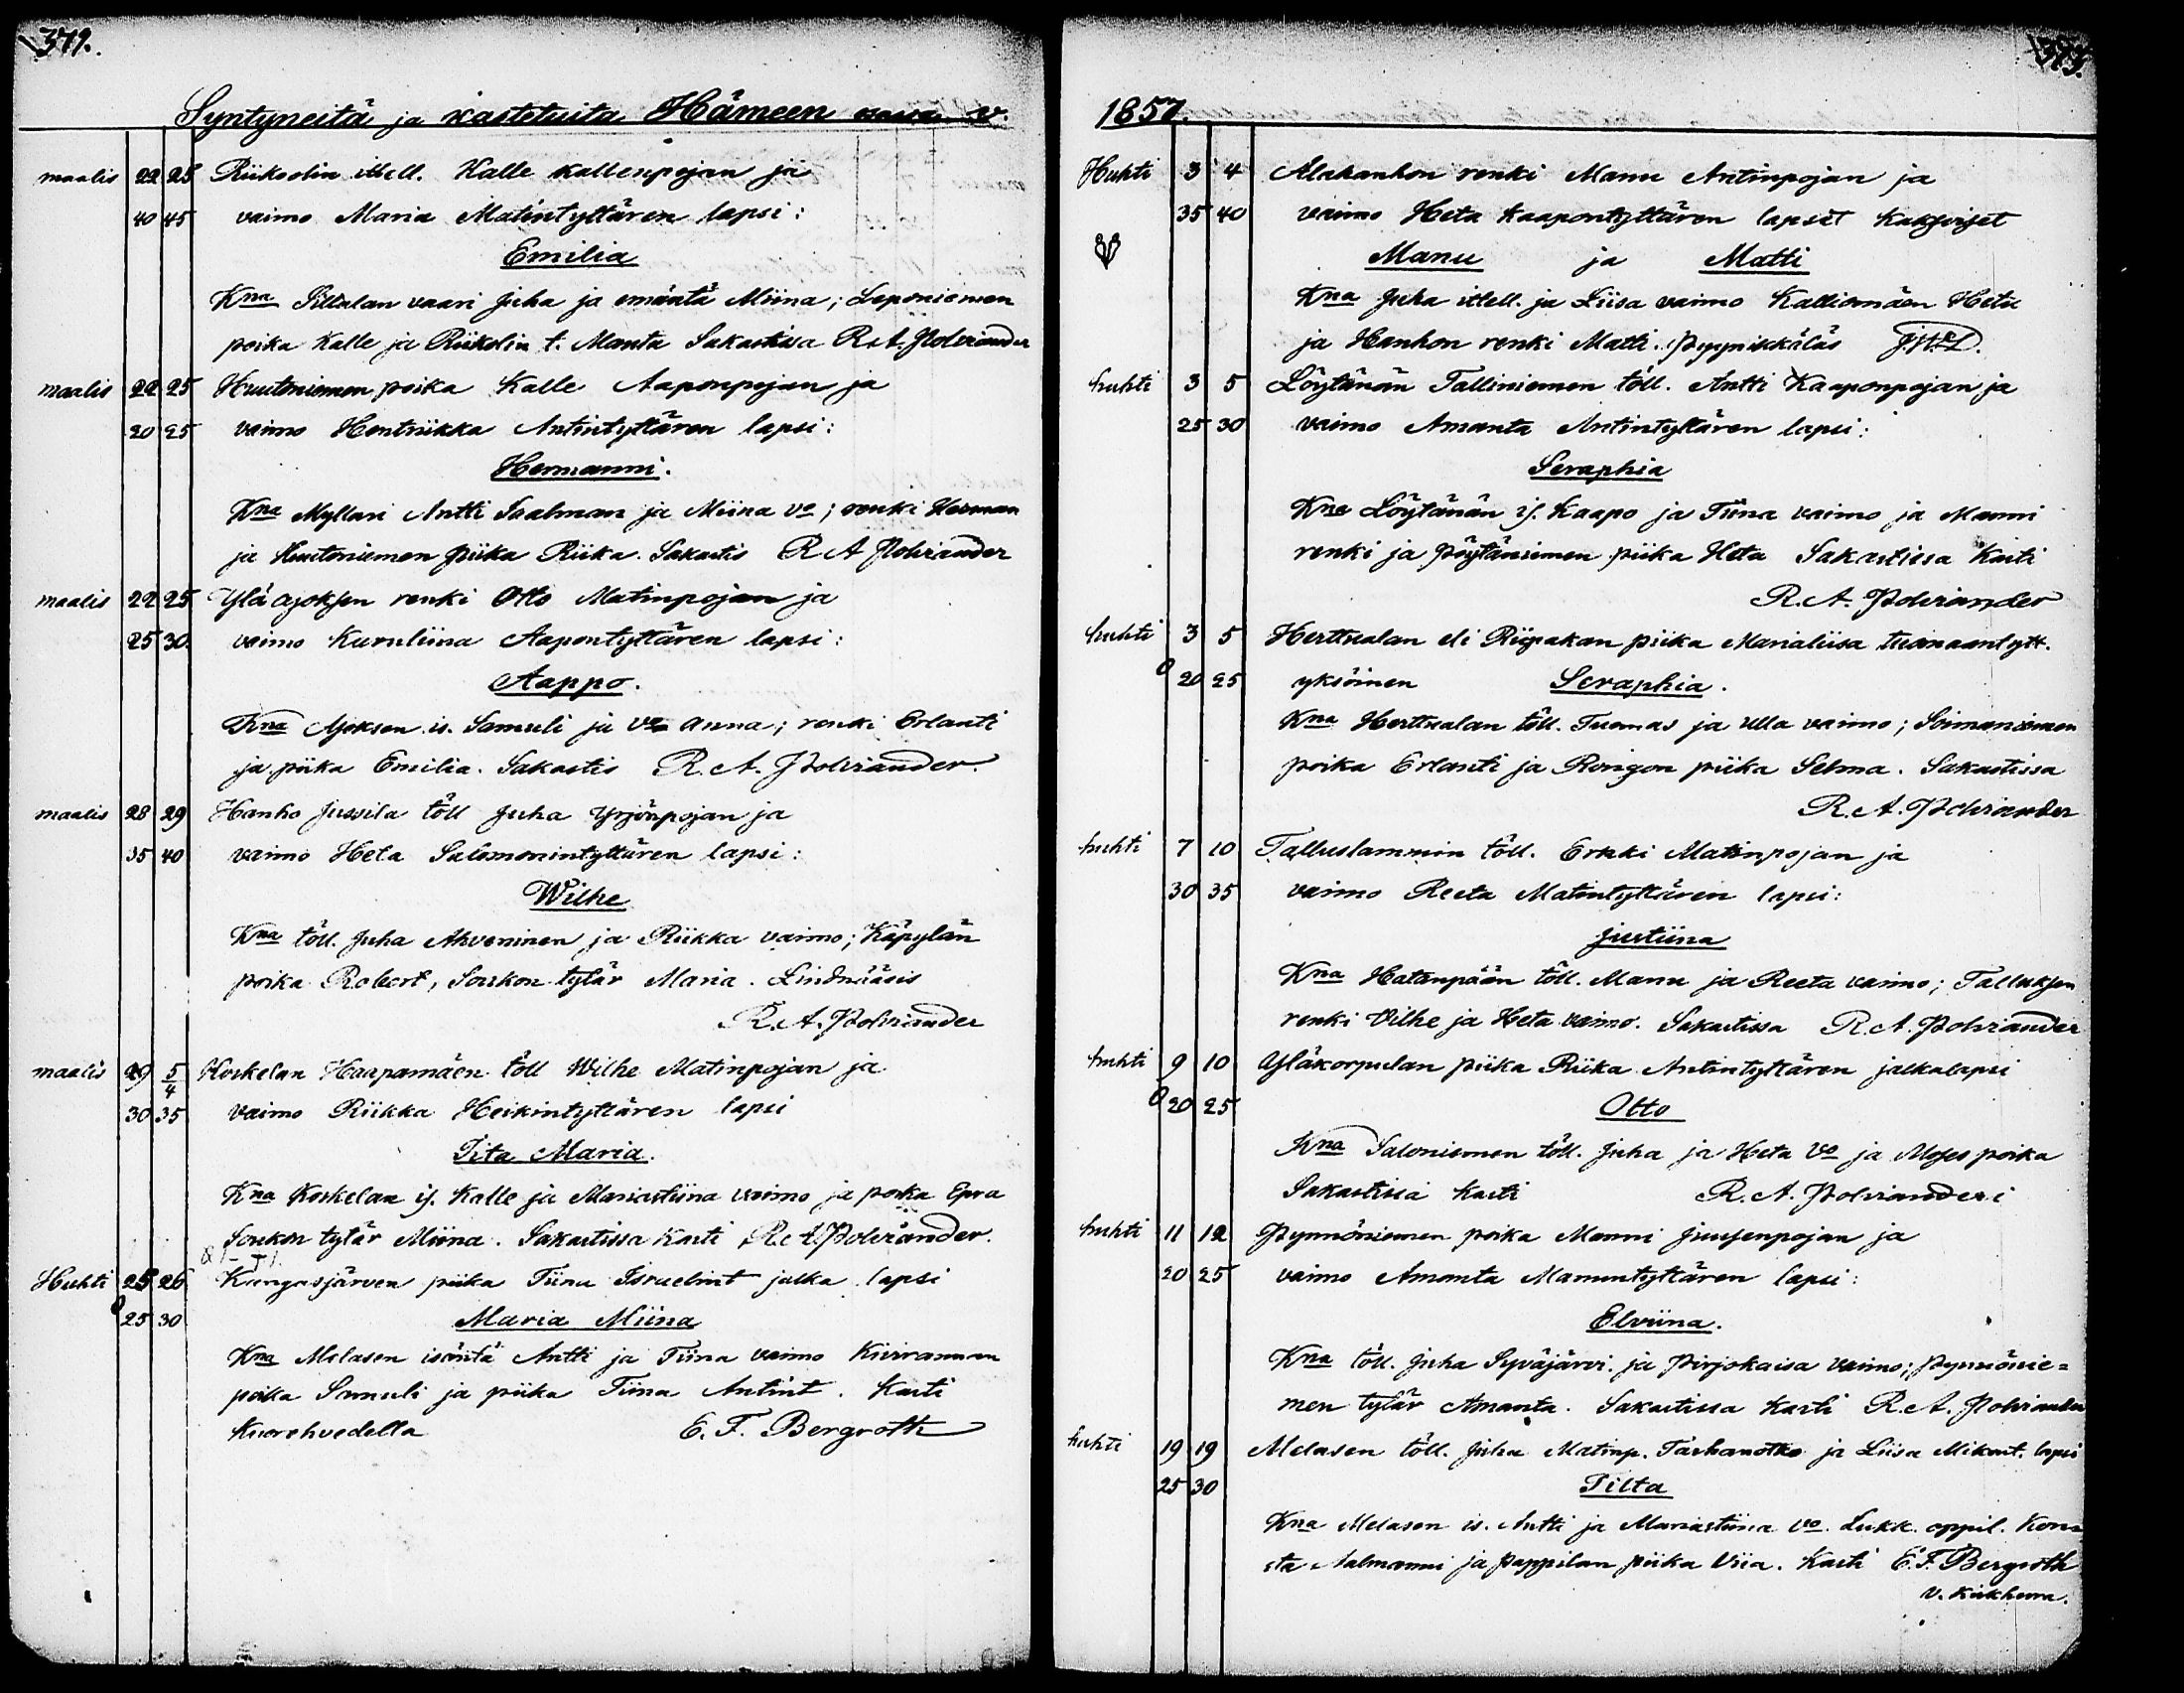 379.
Syntyneitä ja kastetuita Hämeen v.
maalis 22 25 Riikolin itsell. Kalle Kallenpojan ja
40 45 vaimo Maria Matintyttären lapsi:
Emilia
Kna Siltalan vaari Juha ja emäntä Miina; Leponiemen
poika Kalle ja Riikolin t. Manta Sakastissa R.A. Polviander
maalis 22 25 Huutoniemen poika Kalle Aaponpojan ja
20 25 vaimo Hentriikka Antintyttären lapsi:
Hermanni.
Kna Myllari Antti Saalman ja Miina vo; renki Herman
ja Huutoniemen piika Riika. Sakastis R A Polviander
maalis 22 25 Ylä ajoksen renki Otto Matinpojan ja
25 30 vaimo Karuliina Aapontyttären lapsi:
Aappo.
Kna Ajoksen is. Samuli ja vo Anna; renki Erlanti
ja piika Emilia. Sakastis R. A. Polviander.
maalis 28 29 Hanho Jussila töll Juha Yrjönpojan ja
35 40 vaimo Heta Salomonintyttären lapsi:
Wilhe
Kna töll. Juha Ahveninen ja Riikka vaimo; Käpylän
poika Robert, Soukon tytär Maria. Lindnääsis
R. A. Polviander
maalis 29 5/4 Koskelan Haapamäen töll Wilhe Matinpojan ja
30 35 vaimo Riikka Heikintyttären lapsi
Iita Maria.
Kna Koskelan is. Kalle ja Mariastiina vaimo ja poika Epra
Soukon tytär Miina. Sakastissa kasti R. A. Polviander.
Huhti 25 26 Kangasjärven piika Tiina Israelint jalka lapsi
0 25 30 Maria Miina
Kna Melasen isäntä Antti ja Tiina vaimo Kivirannan
poika Samuli ja piika Tiina Antint. Kasti
Kuorehvedella E. F. Bergroth
1857.
Huhti 3 4 Alahanhon renki Manu Antinpojan ja
35 40 vaimo Heta Kaapontyttären lapset kaksoiset
Manu ja Matti
Kna Juha itsell. ja Liisa vaimo Kalliomäen Heta
ja Hanhon renki Matti. Pyynikkäläs
huhti 3 5 Löytänän Talliniemen töll. Antti Kaaponpojan ja
25 30 vaimo Amanta Antintyttären lapsi:
Seraphia
Kna Löytänän is. Kaapo ja Tiina vaimo ja Manni
renki ja Pöytäniemen piika Heta Sakastissa Kasti
R. A. Polviander
huhti 3 5 Herttualan eli Riipakan piika Marialiisa tuomaantytt.
0 20 25 yksöinen Seraphia.
Kna Herttualan töll. Tuomas ja Ulla vaimo; Soimaniemen
poika Erlanti ja Rongon piika Selma. Sakastissa
R. A. Polviander
huhti 7 10 Talluslammin töll. Erkki Matinpojan ja
30 35 vaimo Reeta Matintyttären lapsi:
Justiina
Kna Hatanpään töll. Manu ja Reeta vaimo; Talluksen
renki Vilhe ja Heta vaimo. Sakastissa R. A. Polviander
huhti 9 10 Yläkorpulan piika Riika Antintyttären jalkalapsi
0 20 25 Otto
Kna Saloniemen töll. Juha ja Heta vo ja Moses poika
Sakastissa kasti R. A. Polvianderi
huhti 11 12 Pynnöniemen poika Manni Juusenpojan ja
20 25 vaimo Amanta Manuntyttären lapsi:
Elviina.
Kna töll. Juha Syväjärvi ja Pirjokaisa vaimo; Pynnönie=
men tytär Amanta. Sakastissa kasti R. A. Polviander
huhti 19 19 Melasen töll. Juha Matinp. Tarhanotko ja Liisa Mikont. lapsi
25 30 Tilta
Kna Melasen is. Antti ja Mariastiina vo. Lukk. oppil. Kon=
sta Aalmanni ja Pappilan piika Viia. Kasti E. F. Bergroth
v. kirkherra.